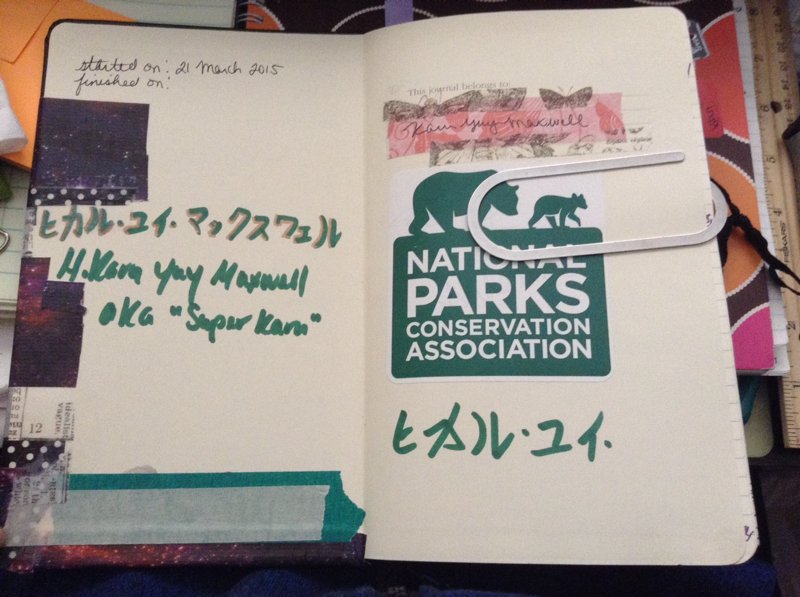 started on: 21 March 2015
finished on:
ヒカル・ユイ・マックスウェル
H. Kara Yuy Maxwell
aka "Super Kara"
12
This journal belongs to:
Kara Yuy Maxwell
NATIONAL
PARKS
CONSERVATION
ASSOCIATION
ヒカル・ユイ・